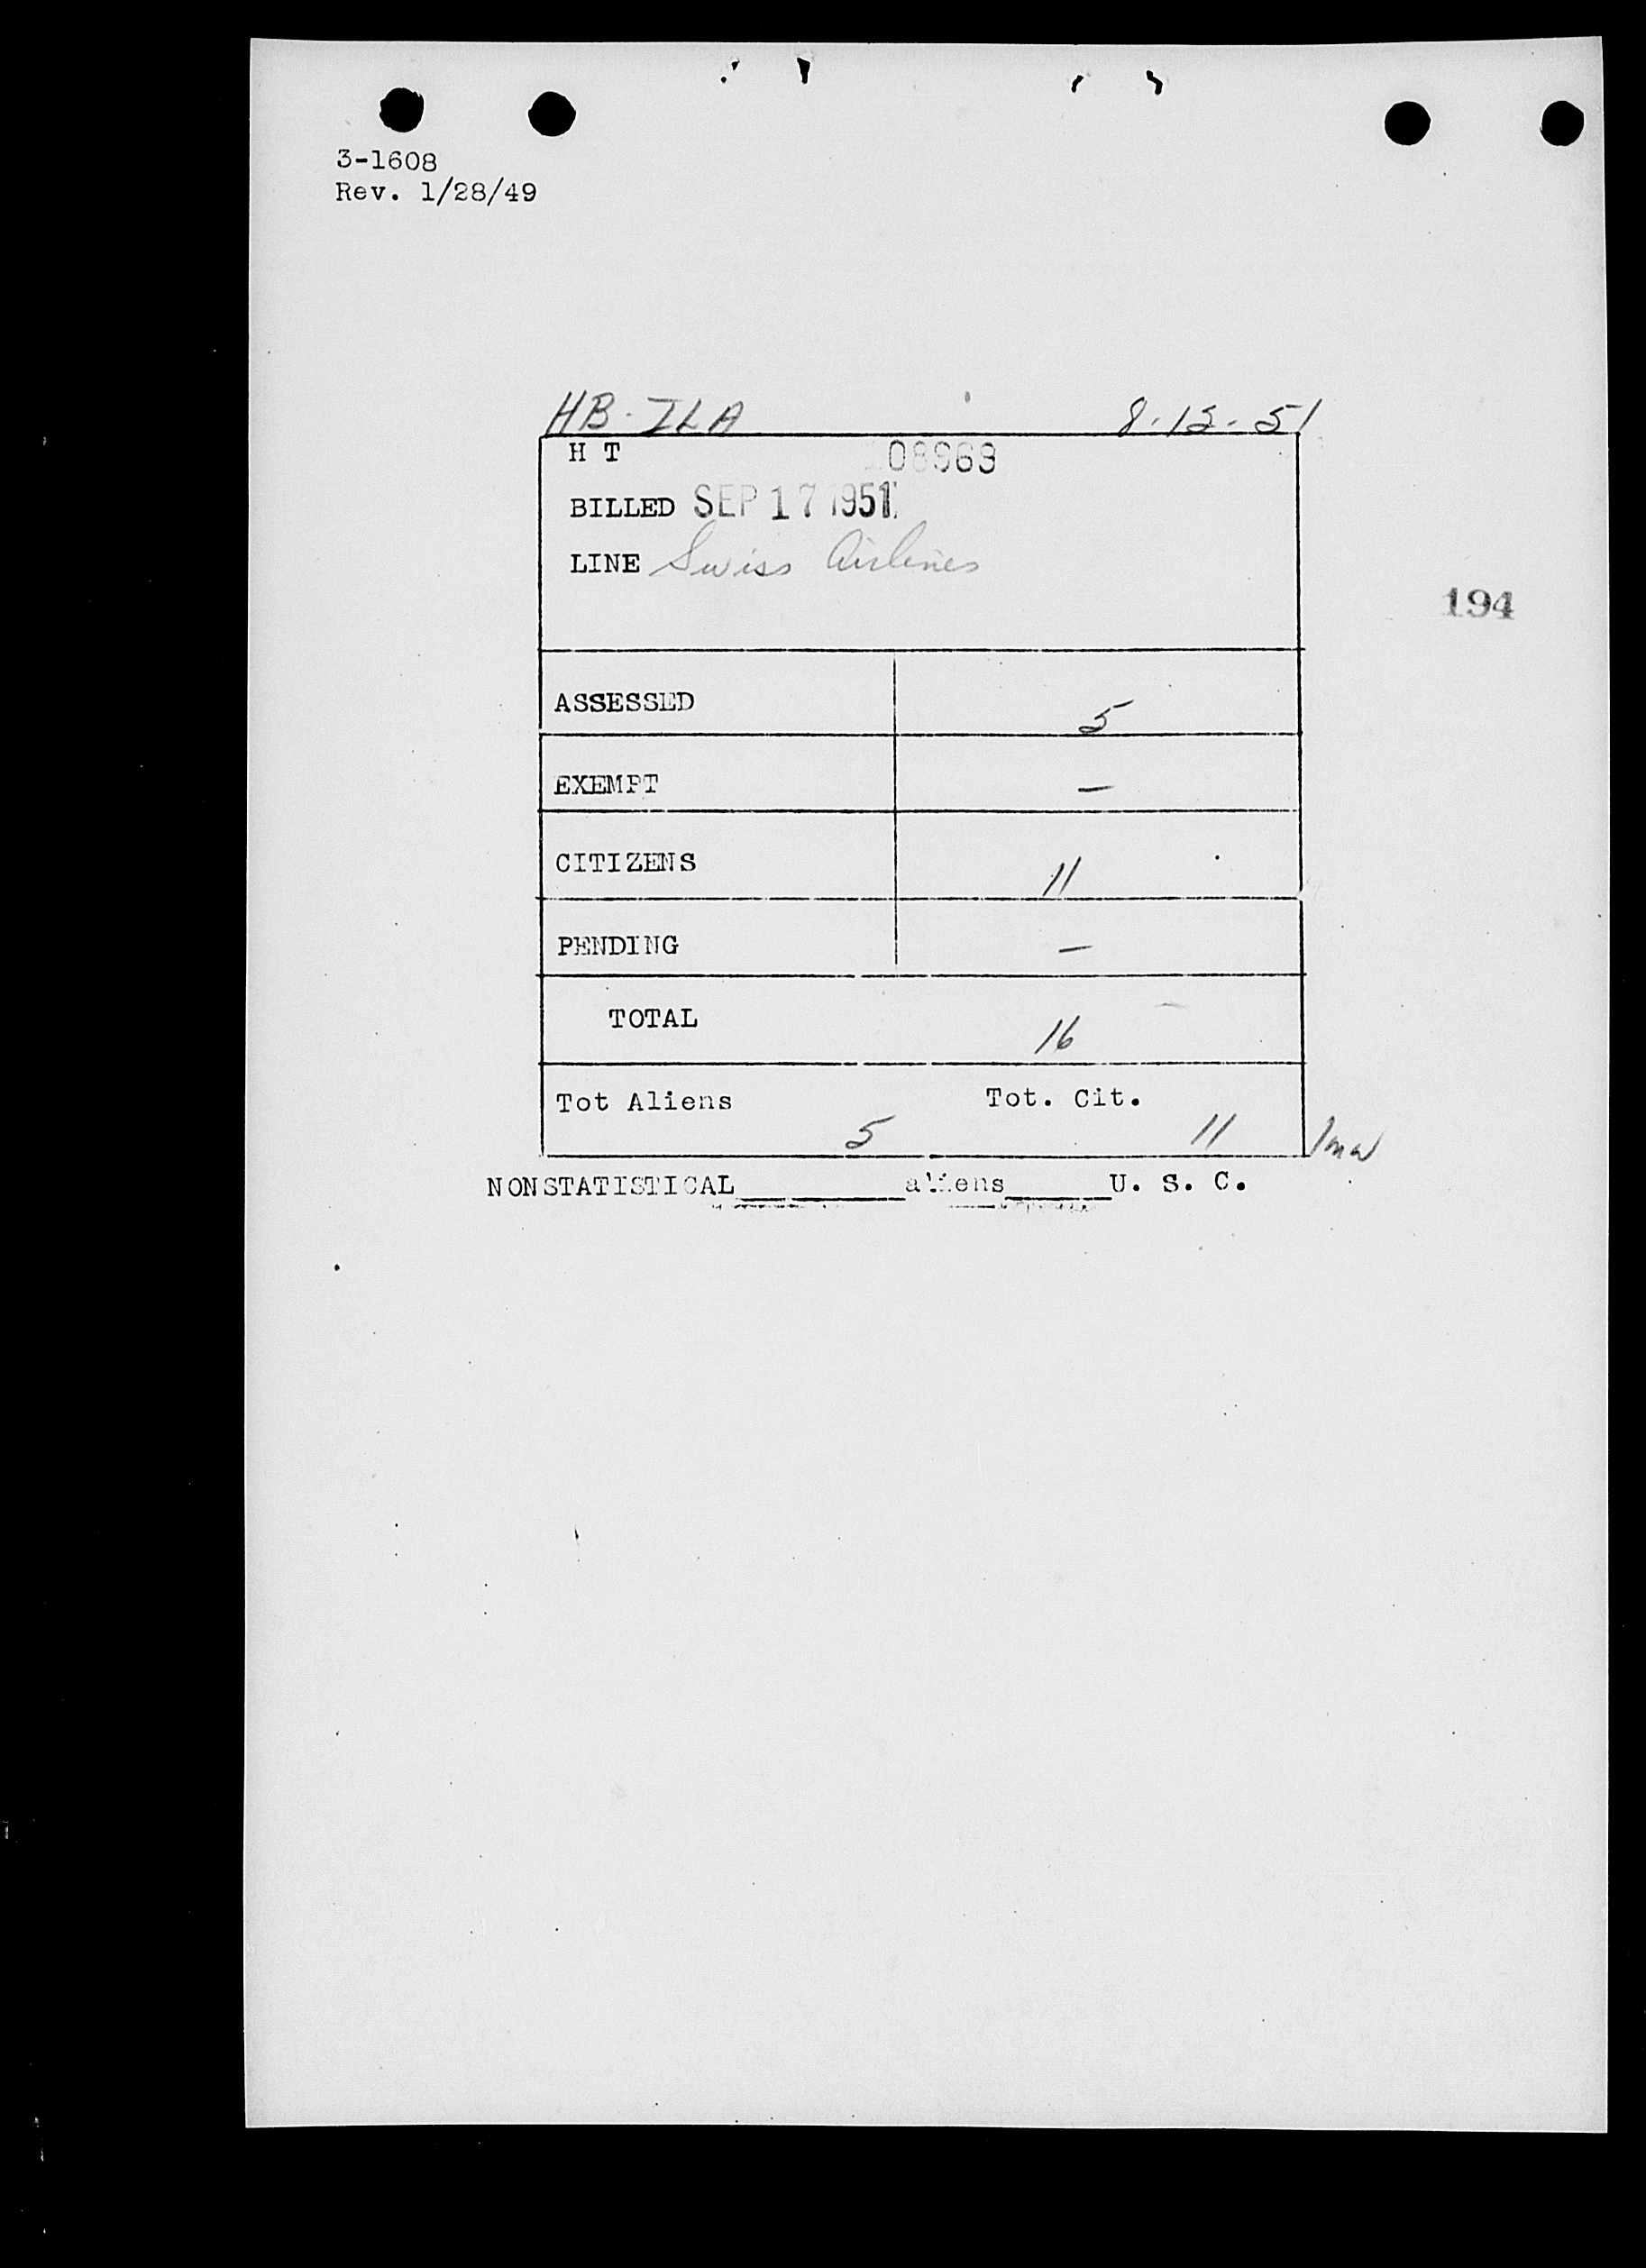 3-1608
Rev. 1/28/49
HB-ILA 8-15-51
H T 08969
BILLED SEP 17 1951
LINE Swiss Airlines
194
ASSESSED 5
EXEMPT —
CITIZENS 11
PENDING —
TOTAL 16
Tot Aliens 5 Tot. Cit. 11
NONSTATISTICAL__________aliens______U. S. C.